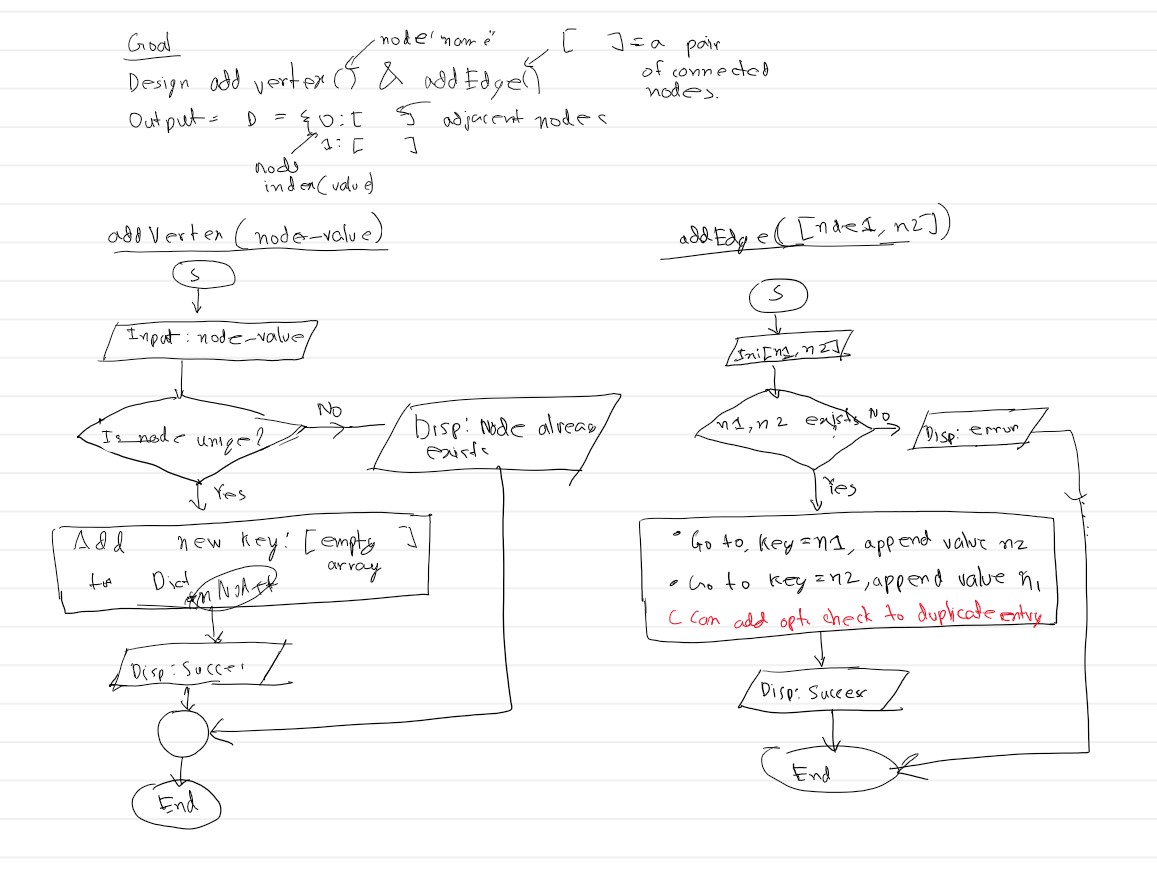 Goal
node "name"
[ ] = a pair
of connected
nodes.
Design add vertex() & addEdge()
Output = D = {0:[ ] adjacent nodes
1:[ ]
node
index(value)
addVertex(node-value)
S
Input: node-value
Is node unique?
No
Disp: Node alread
exists
Yes
Add new key: [empty ]
array
to Dict
Disp: Success
End
addEdge([nde1, n2])
S
Ini[n1, n2]
n1, n2 exists
No
Disp: error
Yes
• Go to, key = n1, append value n2
• Go to key = n2, append value n1
C Can add opt. check to duplicate entry
Disp: Success
End